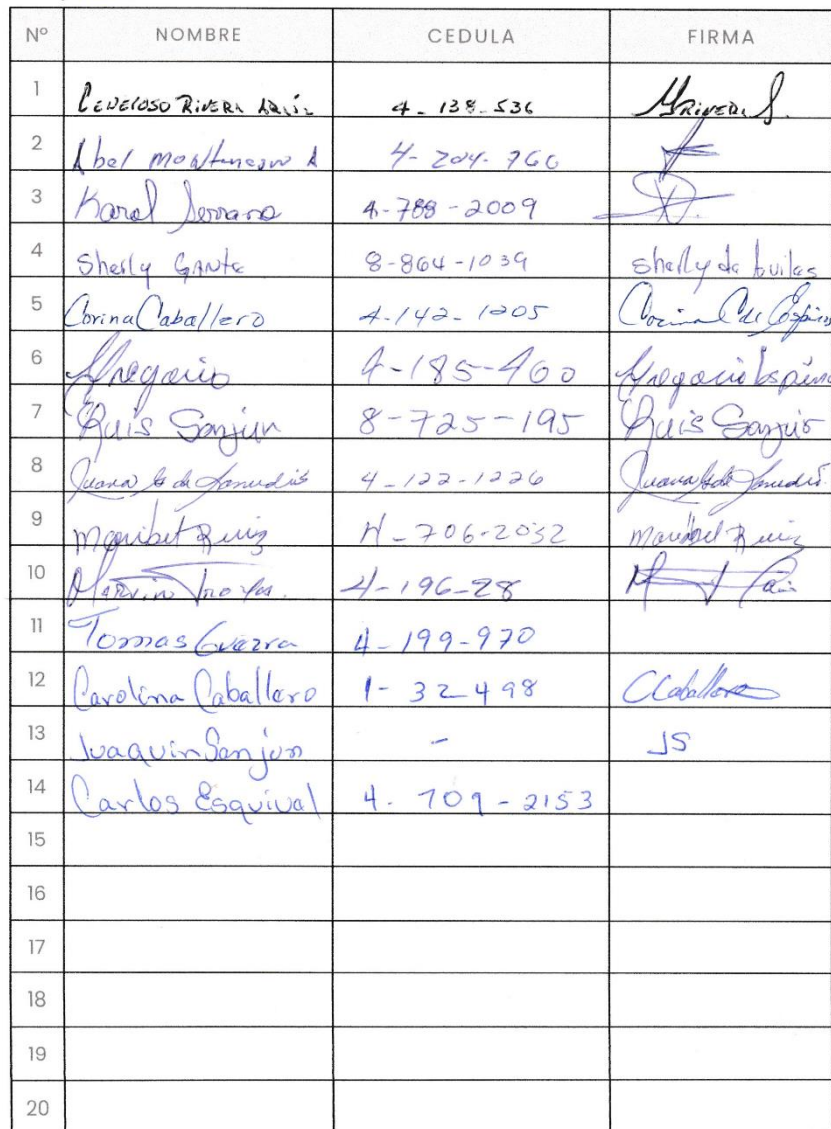 Nº NOMBRE CEDULA FIRMA
1 RIVERA 4-138-536
2 Abel 4-204-760
3 Karol Serrano 4-788-2009
4 Sherly Gante 8-864-1039 Sherly de Avilas
5 Corina Caballero 4-142-1205 Corina C de
6 Gregorio 4-185-460 Gregorio Espino
7 Sanjur 8-725-195 Sanjur
8 Juana de 4-122-1226 Juana de
9 Maribel Ruiz 4-706-2032 Maribel Ruiz
10 Marvin 4-196-28
11 Tomas Guerra 4-199-970
12 Carolina Caballero 1-32-498 CCaballero
13 Juaquin Sanjur - JS
14 Carlos Esquival 4-709-2153
15
16
17
18
19
20